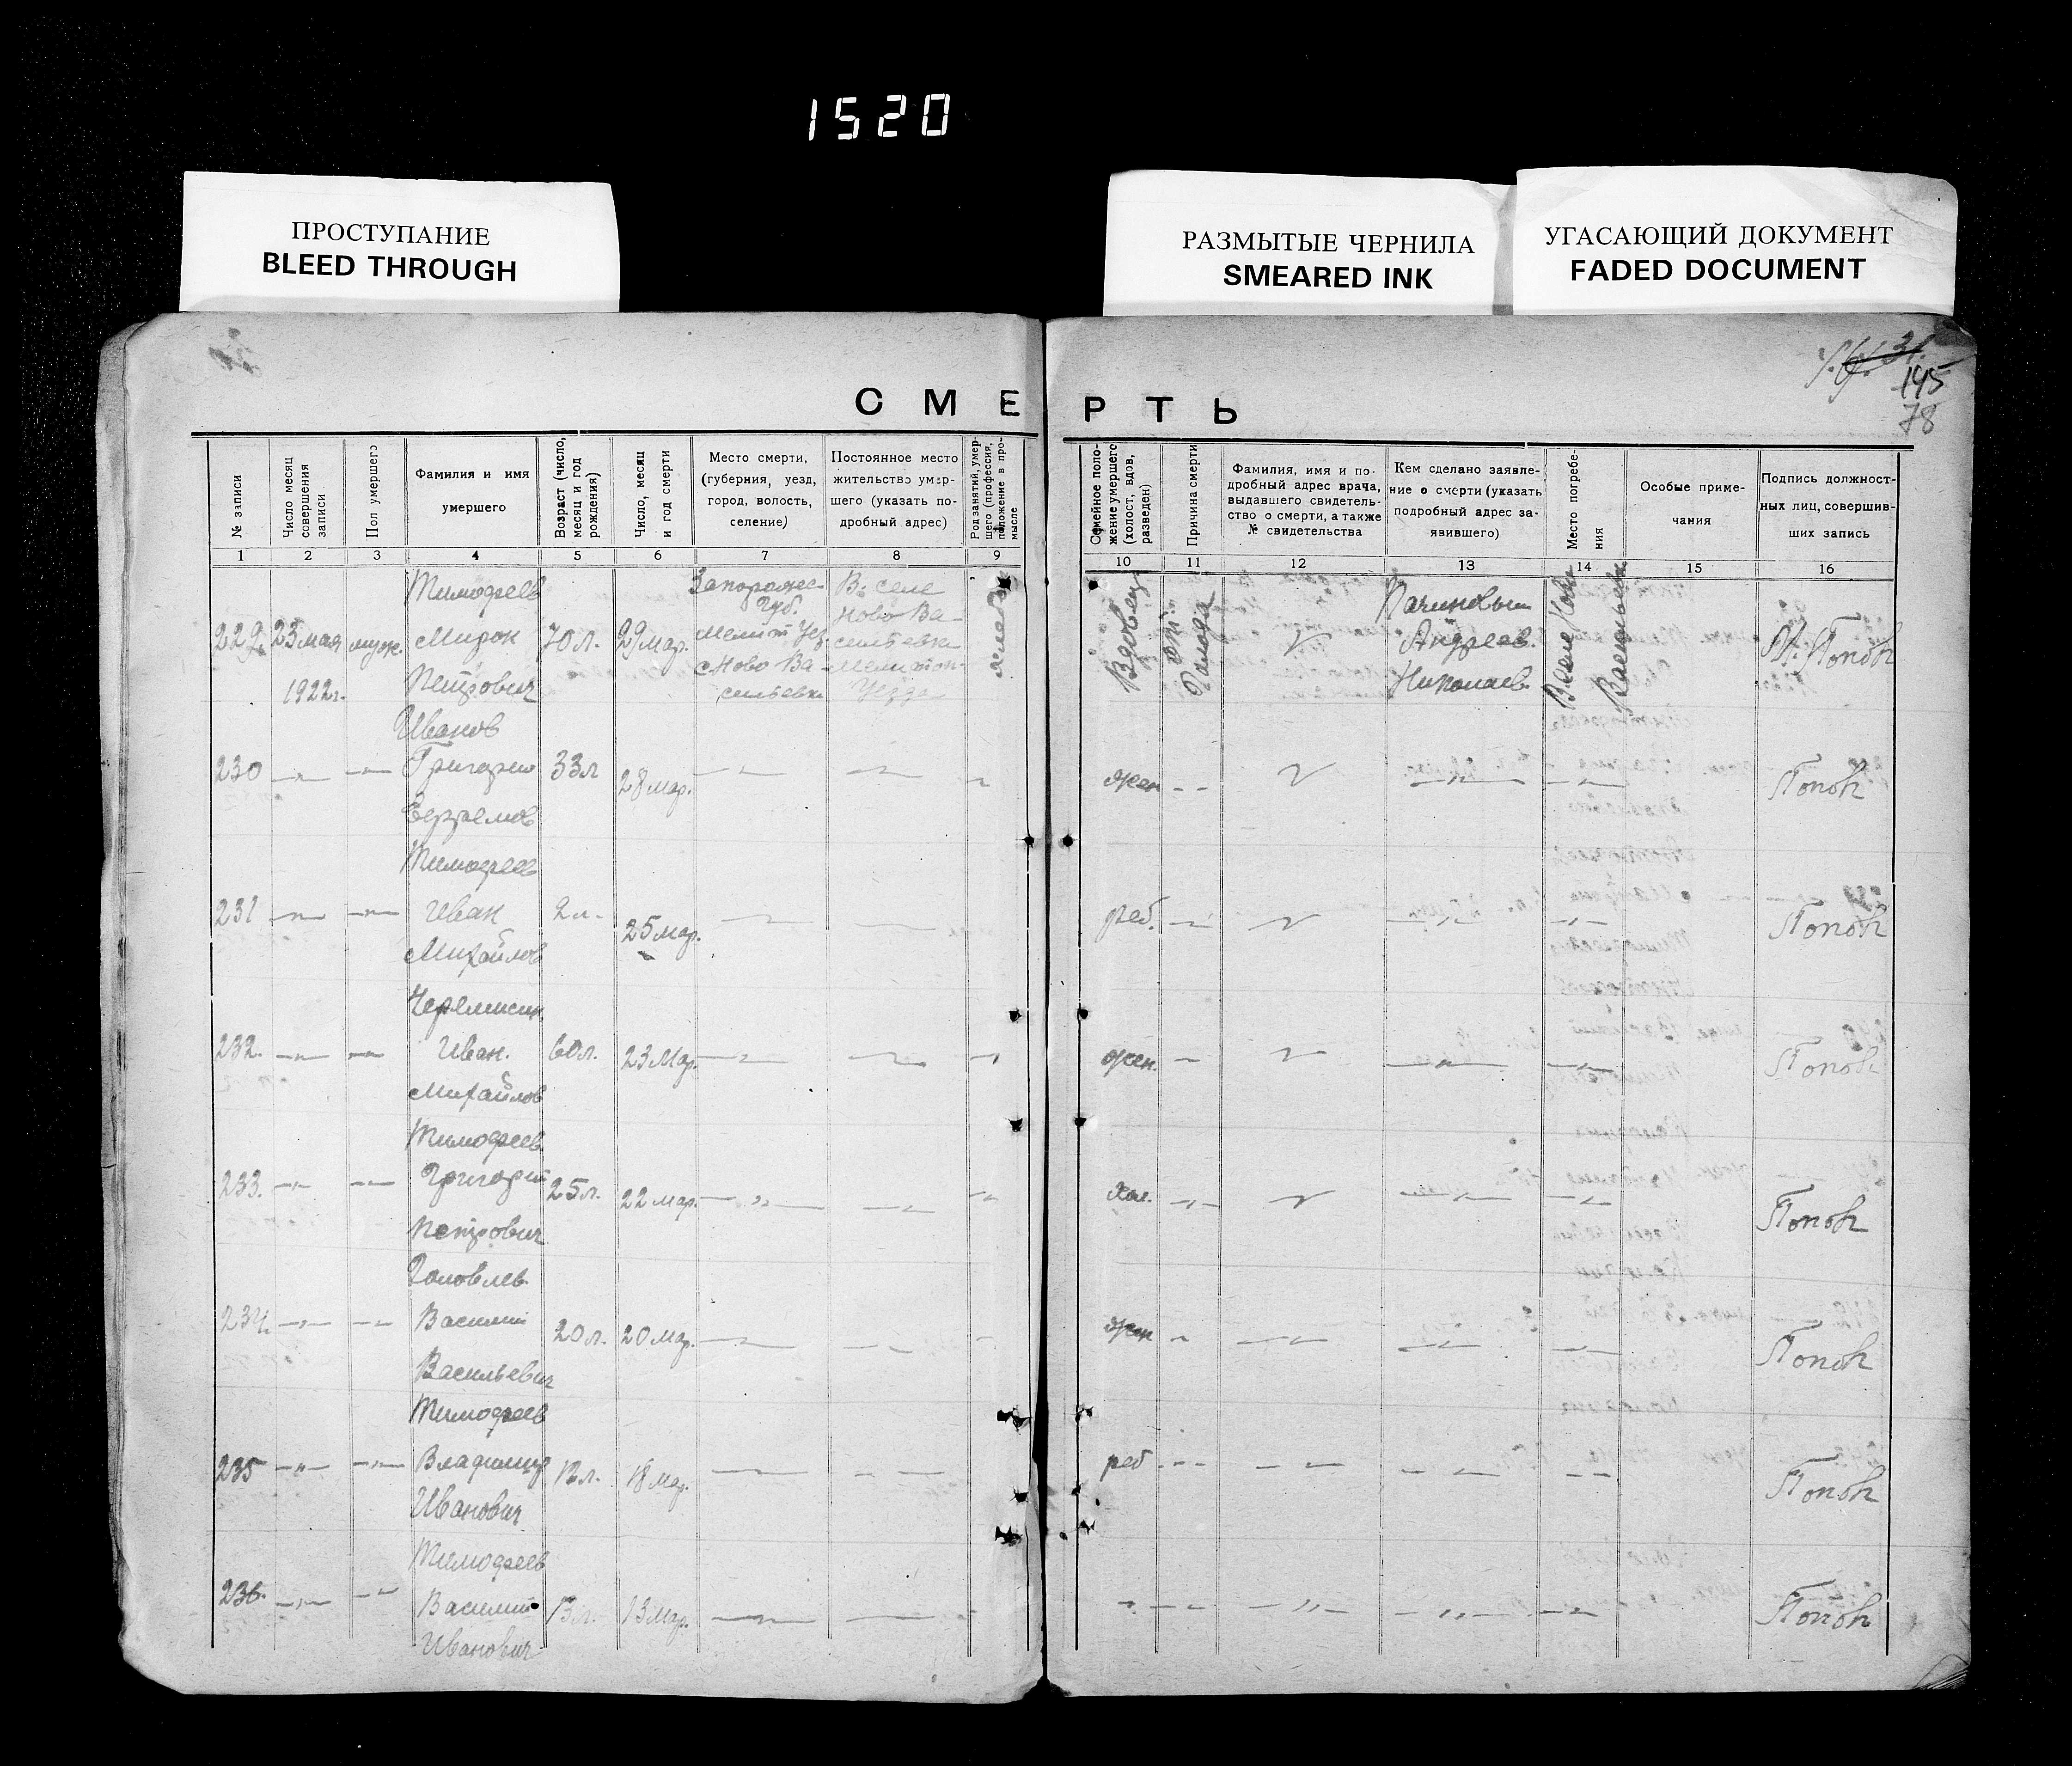 1520
ПРОСТУПАНИЕ
BLEED THROUGH
РАЗМЫТЫЕ ЧЕРНИЛА
SMEARED INK
УГАСАЮЩИЙ ДОКУМЕНТ
FADED DOCUMENT
31.
145
78
СМЕРТЬ
№ записи
Число месяц совершения записи
Пол умершего
Фамилия и имя
умершего
Возраст (число, месяц и год рождения)
Число, месяц и год смерти
Место смерти,
(губерния, уезд,
город, волость,
селение)
Постоянное место
жительство умер-
шего (указать по-
дробный адрес)
Род занятий, умер-
шего (профессия,
положение в про-
мысле
Семейное поло-
жение умершего
(холост, вдов,
разведен)
Причина смерти
Фамилия, имя и по-
дробный адрес врача,
выдавшего свидетель-
ство о смерти, а также
№ свидетельства
Кем сделано заявле-
ние о смерти (указать
подробный адрес за-
явившего)
Место погребе-
ния
Особые приме-
чания
Подпись должност-
ных лиц, совершив-
ших запись
1 2 3 4 5 6 7 8 9 10 11 12 13 14 15 16
Тимофеев
229. 23 мая муж. Мирон 70 л. 29 мар.
1922 г. Петрович
Запорожс.
Губ.
Мелит Уез.
с Ново Ва-
сильевка
В. селе
Ново Ва-
сильевка
Мелитоп.
Уезда
Вдовец
От
Голода
Андреев
Николаев.
В селе Ново
Васильевке
Попов
Иванов
230 —„— —„— Григорий 33 л 28 мар. —„— —„—
жен — — —„— —„— Попов
Тимофеев
231 —„— —„— Иван 2 л. 25 мар.
Михайлов
реб. —„— —„— —„— Попов
Черемисин
232. —„— —„— Иван. 60 л. 23 Мар. —„— —„—
Михайлов
жен. — —„— —„— Попов
Тимофеев
233. —„— —„— Григорий 25 л. 22 мар. —„— —„—
Петрович
хол. —„— —„— —„— Попов
Головлев
234. —„— — — Василий 20 л. 20 мар.
Васильевич
жен —„— —„— —„— Попов
Тимофеев
235 —„— —„— Владимир 12 л. 18 мар.
Иванович
реб — — — — — — — — Попов
Тимофеев
236. —„— —„— Василий 13 л. 13 мар. —„—
Иванович
— — —„— —„— —„— Попов